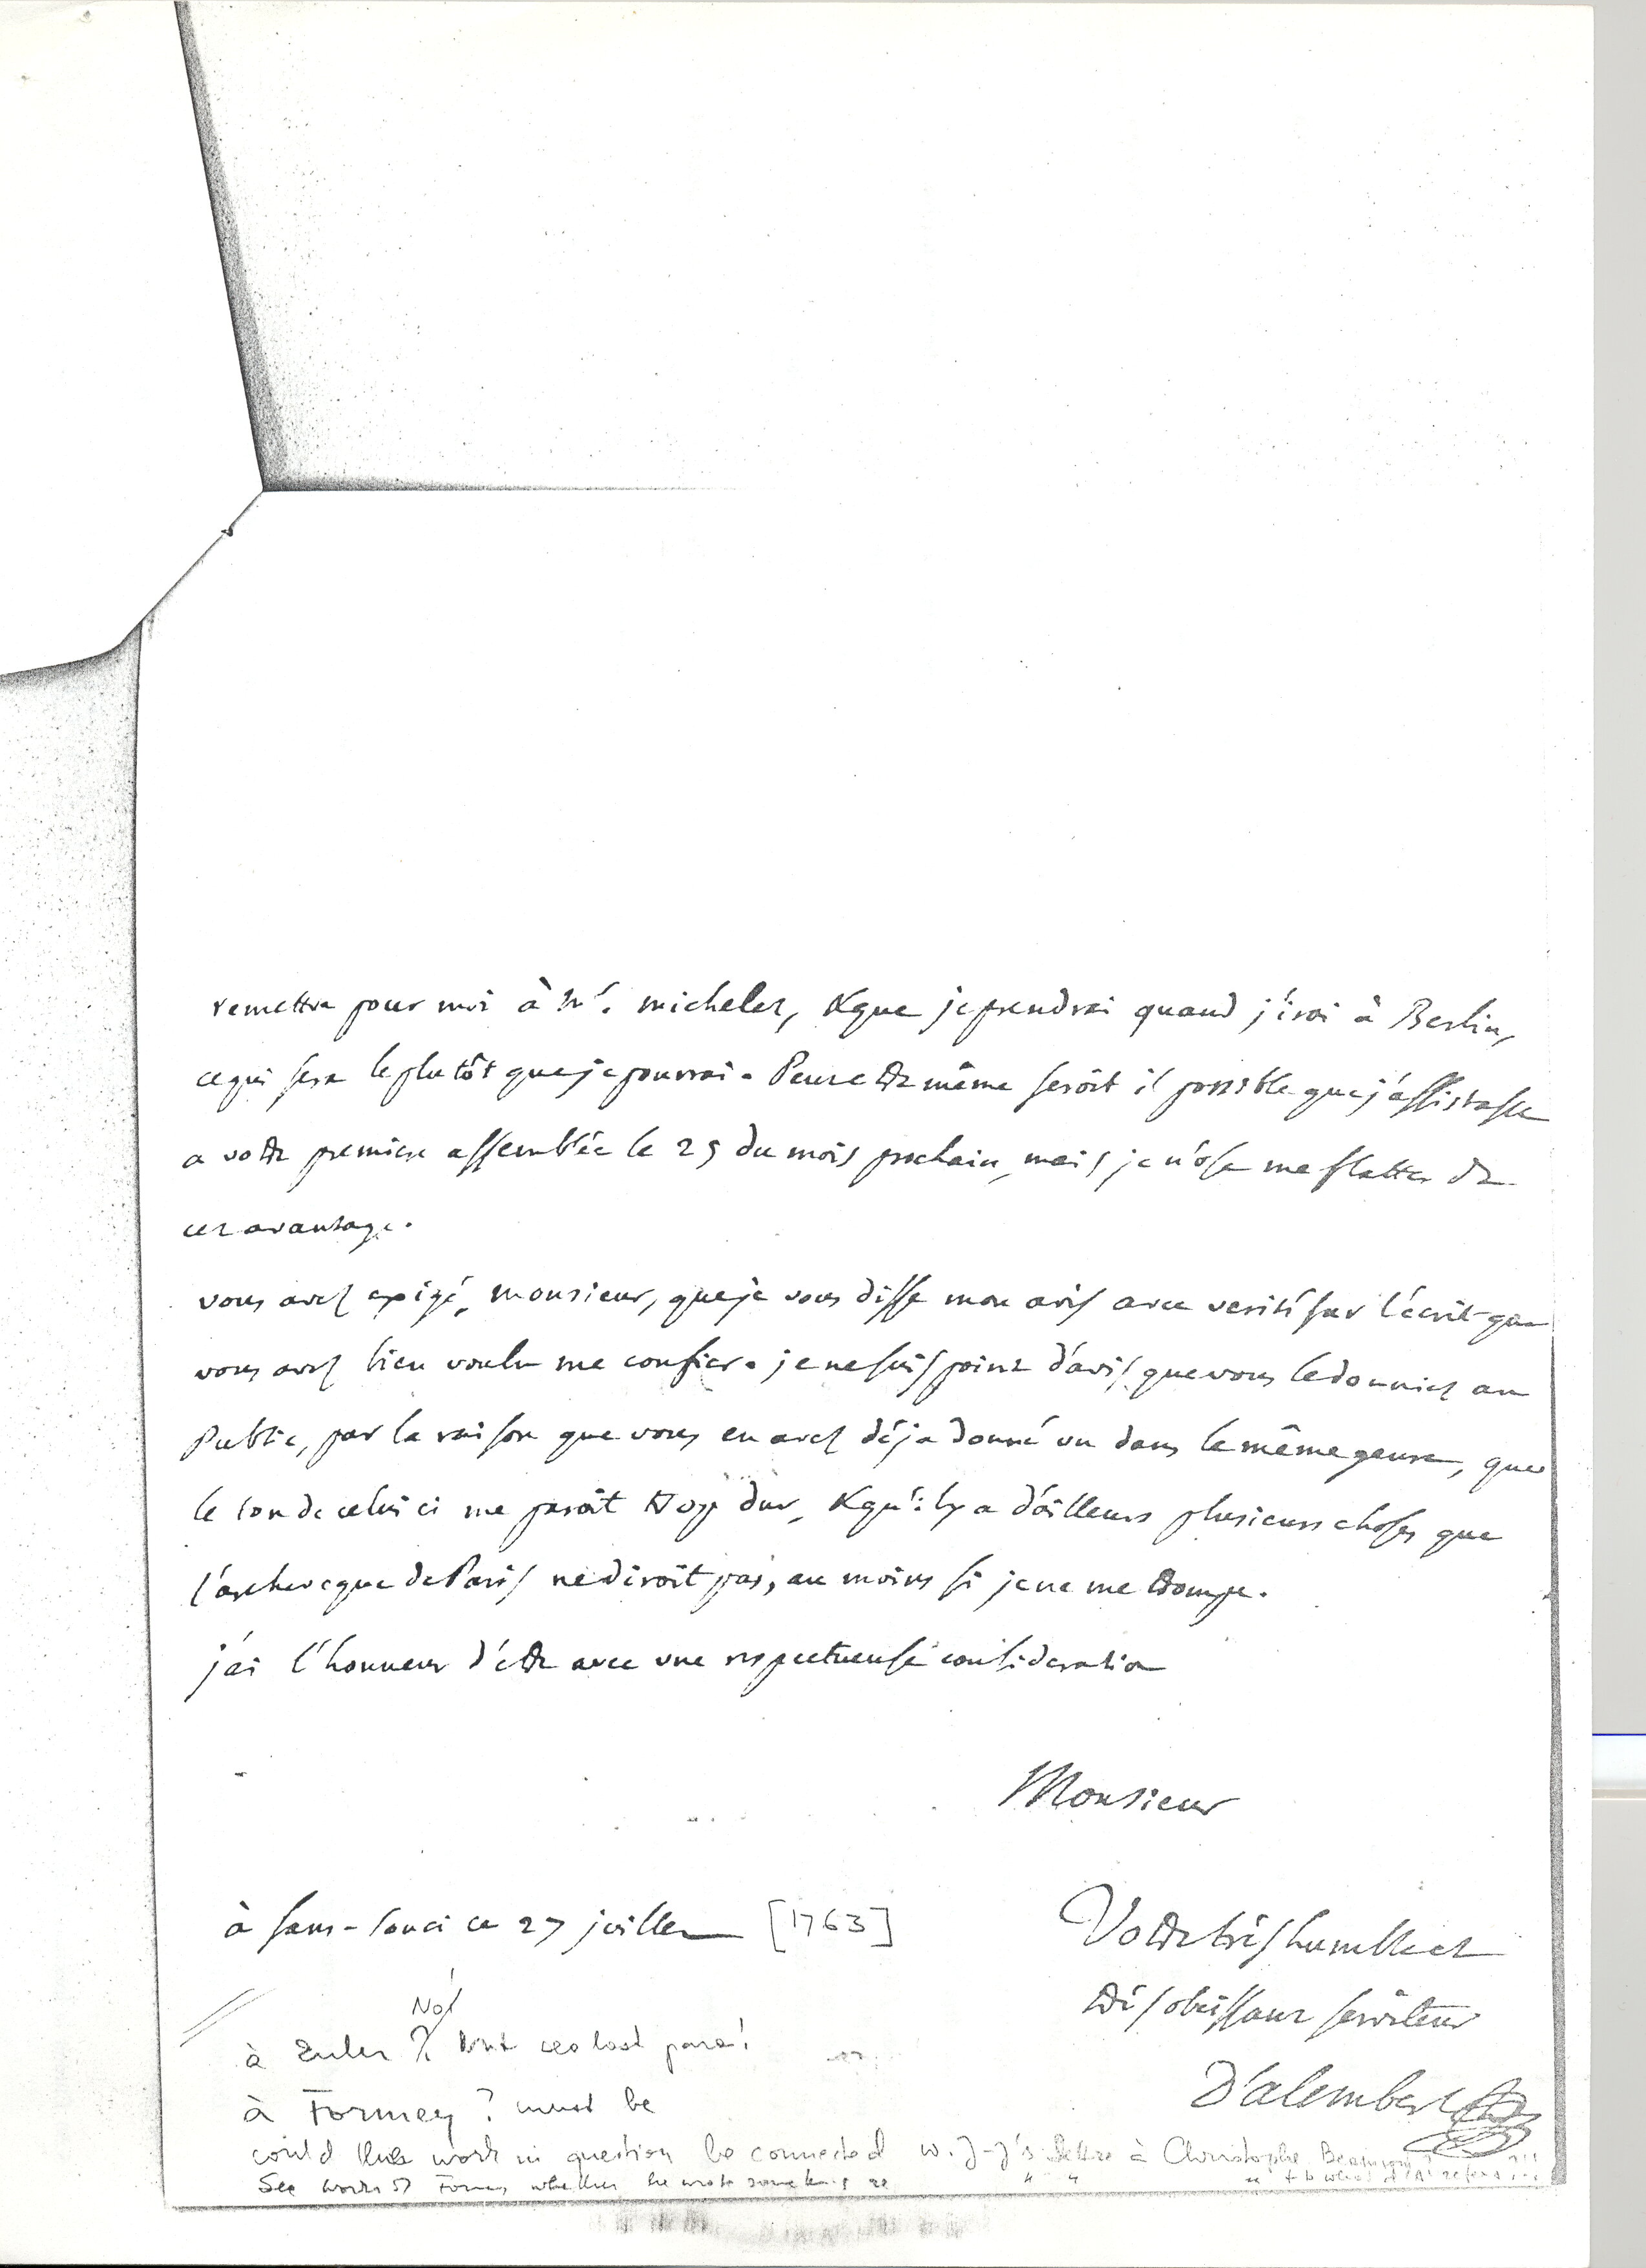 remettre pour moi à Mr. michelet, & que je prendrai quand j'irai à Berlin,
ce qui sera le plutôt que je pourrai. Peut etre même seroit il possible que j'assistasse
a votre premiere assemblée le 25 du mois prochain, mais je n'ose me flatter de
cet avantage.
vous avez exigé, monsieur, que je vous disse mon avis avec verité sur l'écrit que
vous avez bien voulu me confier. je ne suis point d'avis que vous le donniez au
Public, par la raison que vous en avez déja donné un dans le même genre, que
le ton de celui ci me paroît trop dur, & qu'il y a d'ailleurs plusieurs choses que
l'archeveque de Paris ne diroit pas, au moins si je ne me trompe.
j'ai l'honneur d'étre avec une respectueuse consideration
Monsieur
à Sans-Souci ce 27 juillet [1763]
Votre très humble et
très obeissant serviteur
D'alembert
No!
à Euler ? last para!
à Formey ? must be
could this work in question be connected w. J-J's Lettre à Christophe Beaumont?
See works of Formey whether he wrote something re " " " + to what d'A! refers